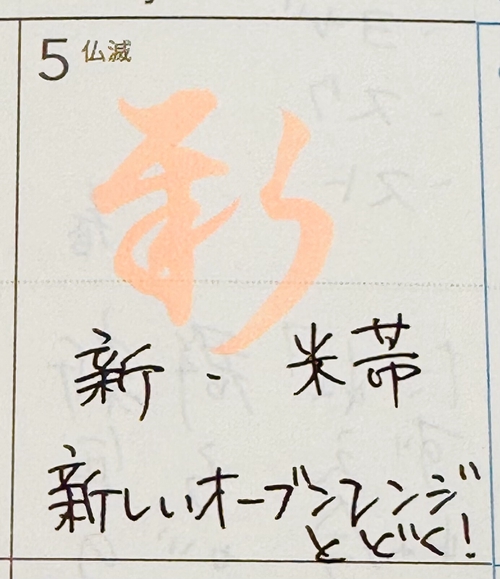 5 仏滅
新
新 - 米芾
新しいオーブンレンジ
とどく!